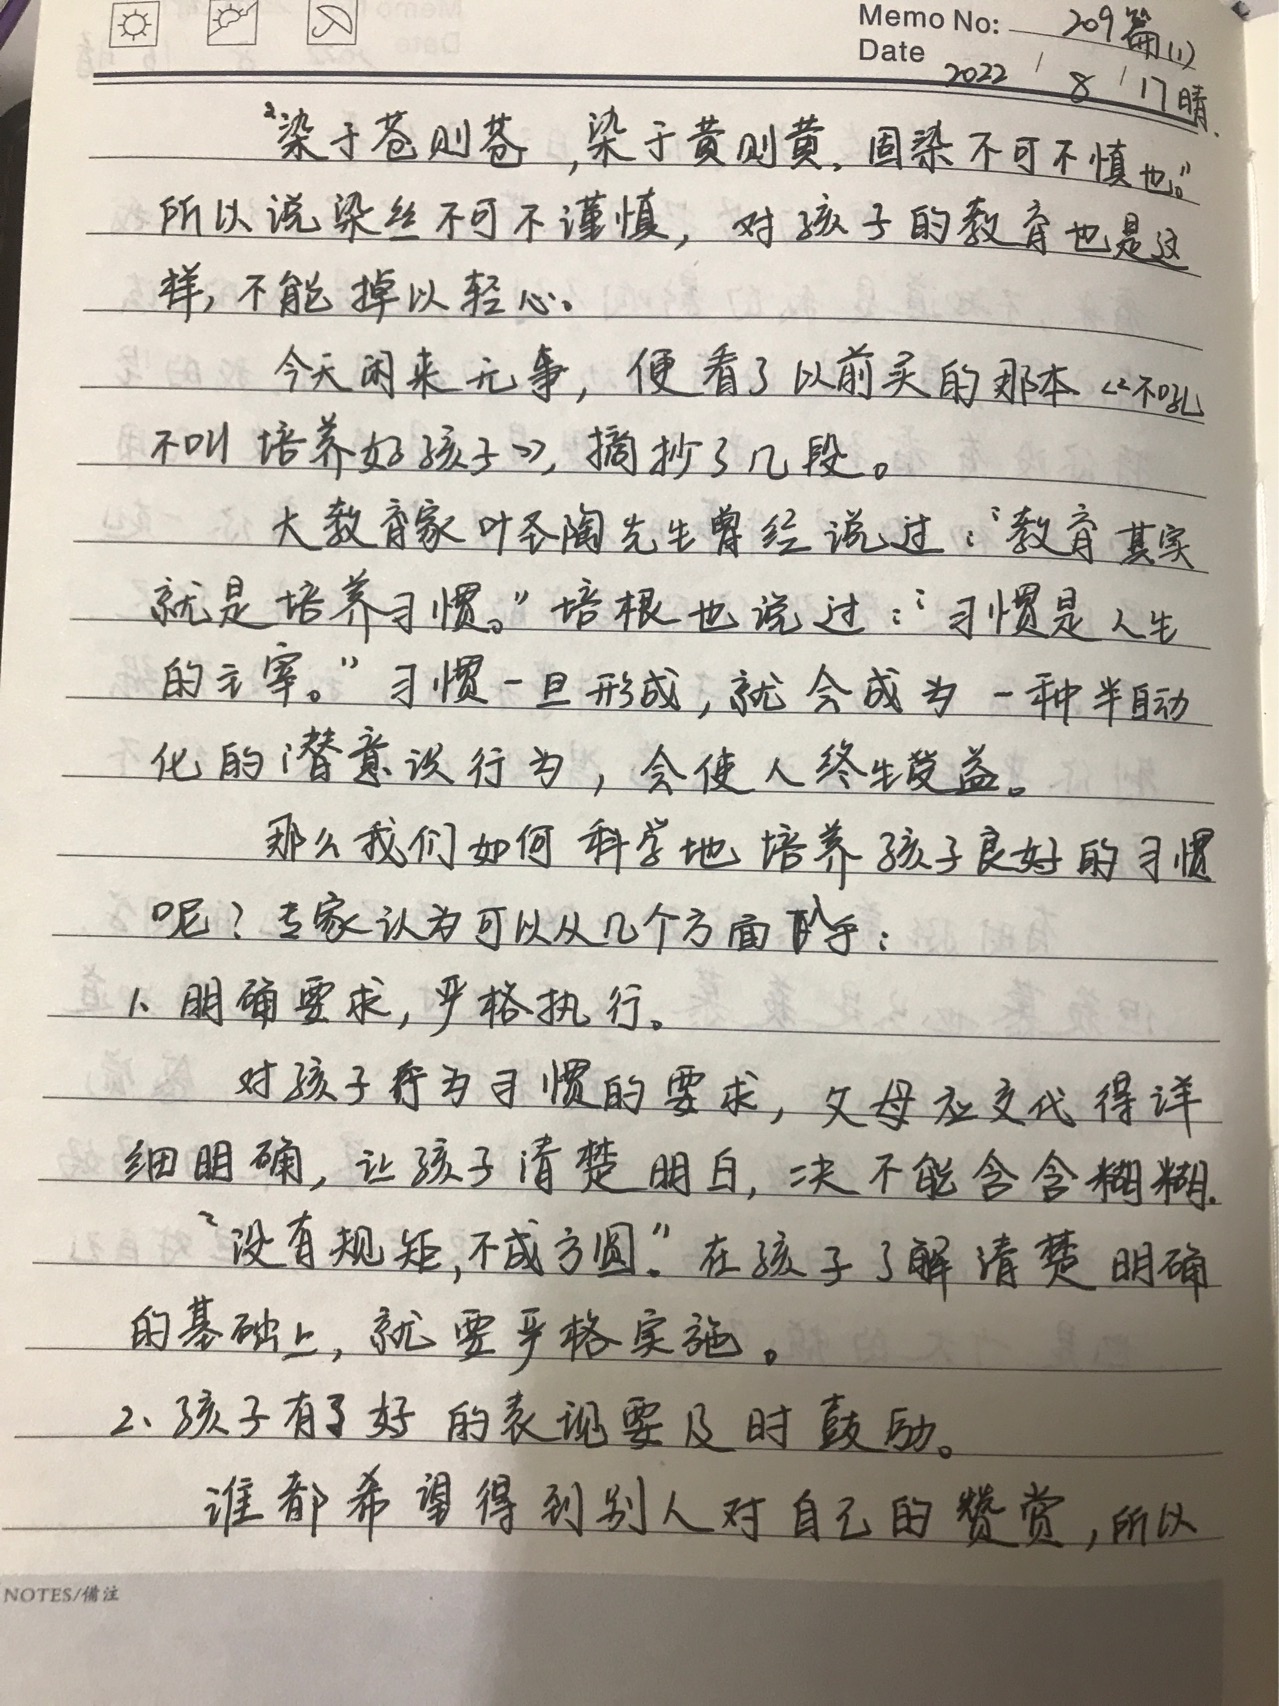 Memo No: 209篇(1)
Date 2022 / 8 / 17 晴.
“染于苍则苍,染于黄则黄,固染不可不慎也。”
所以说染丝不可不谨慎,对孩子的教育也是这
样,不能掉以轻心。
今天闲来无事,便看了以前买的那本《不吼
不叫培养好孩子》,摘抄了几段。
大教育家叶圣陶先生曾经说过:“教育其实
就是培养习惯。”培根也说过:“习惯是人生
的主宰。”习惯一旦形成,就会成为一种半自动
化的潜意识行为,会使人终生受益。
那么我们如何科学地培养孩子良好的习惯
呢?专家认为可以从几个方面入手:
1、明确要求,严格执行。
对孩子行为习惯的要求,父母应交代得详
细明确,让孩子清楚明白,决不能含含糊糊.
“没有规矩,不成方圆。”在孩子了解清楚明确
的基础上,就要严格实施。
2、孩子有了好的表现要及时鼓励。
谁都希望得到别人对自己的赞赏,所以
NOTES/備注